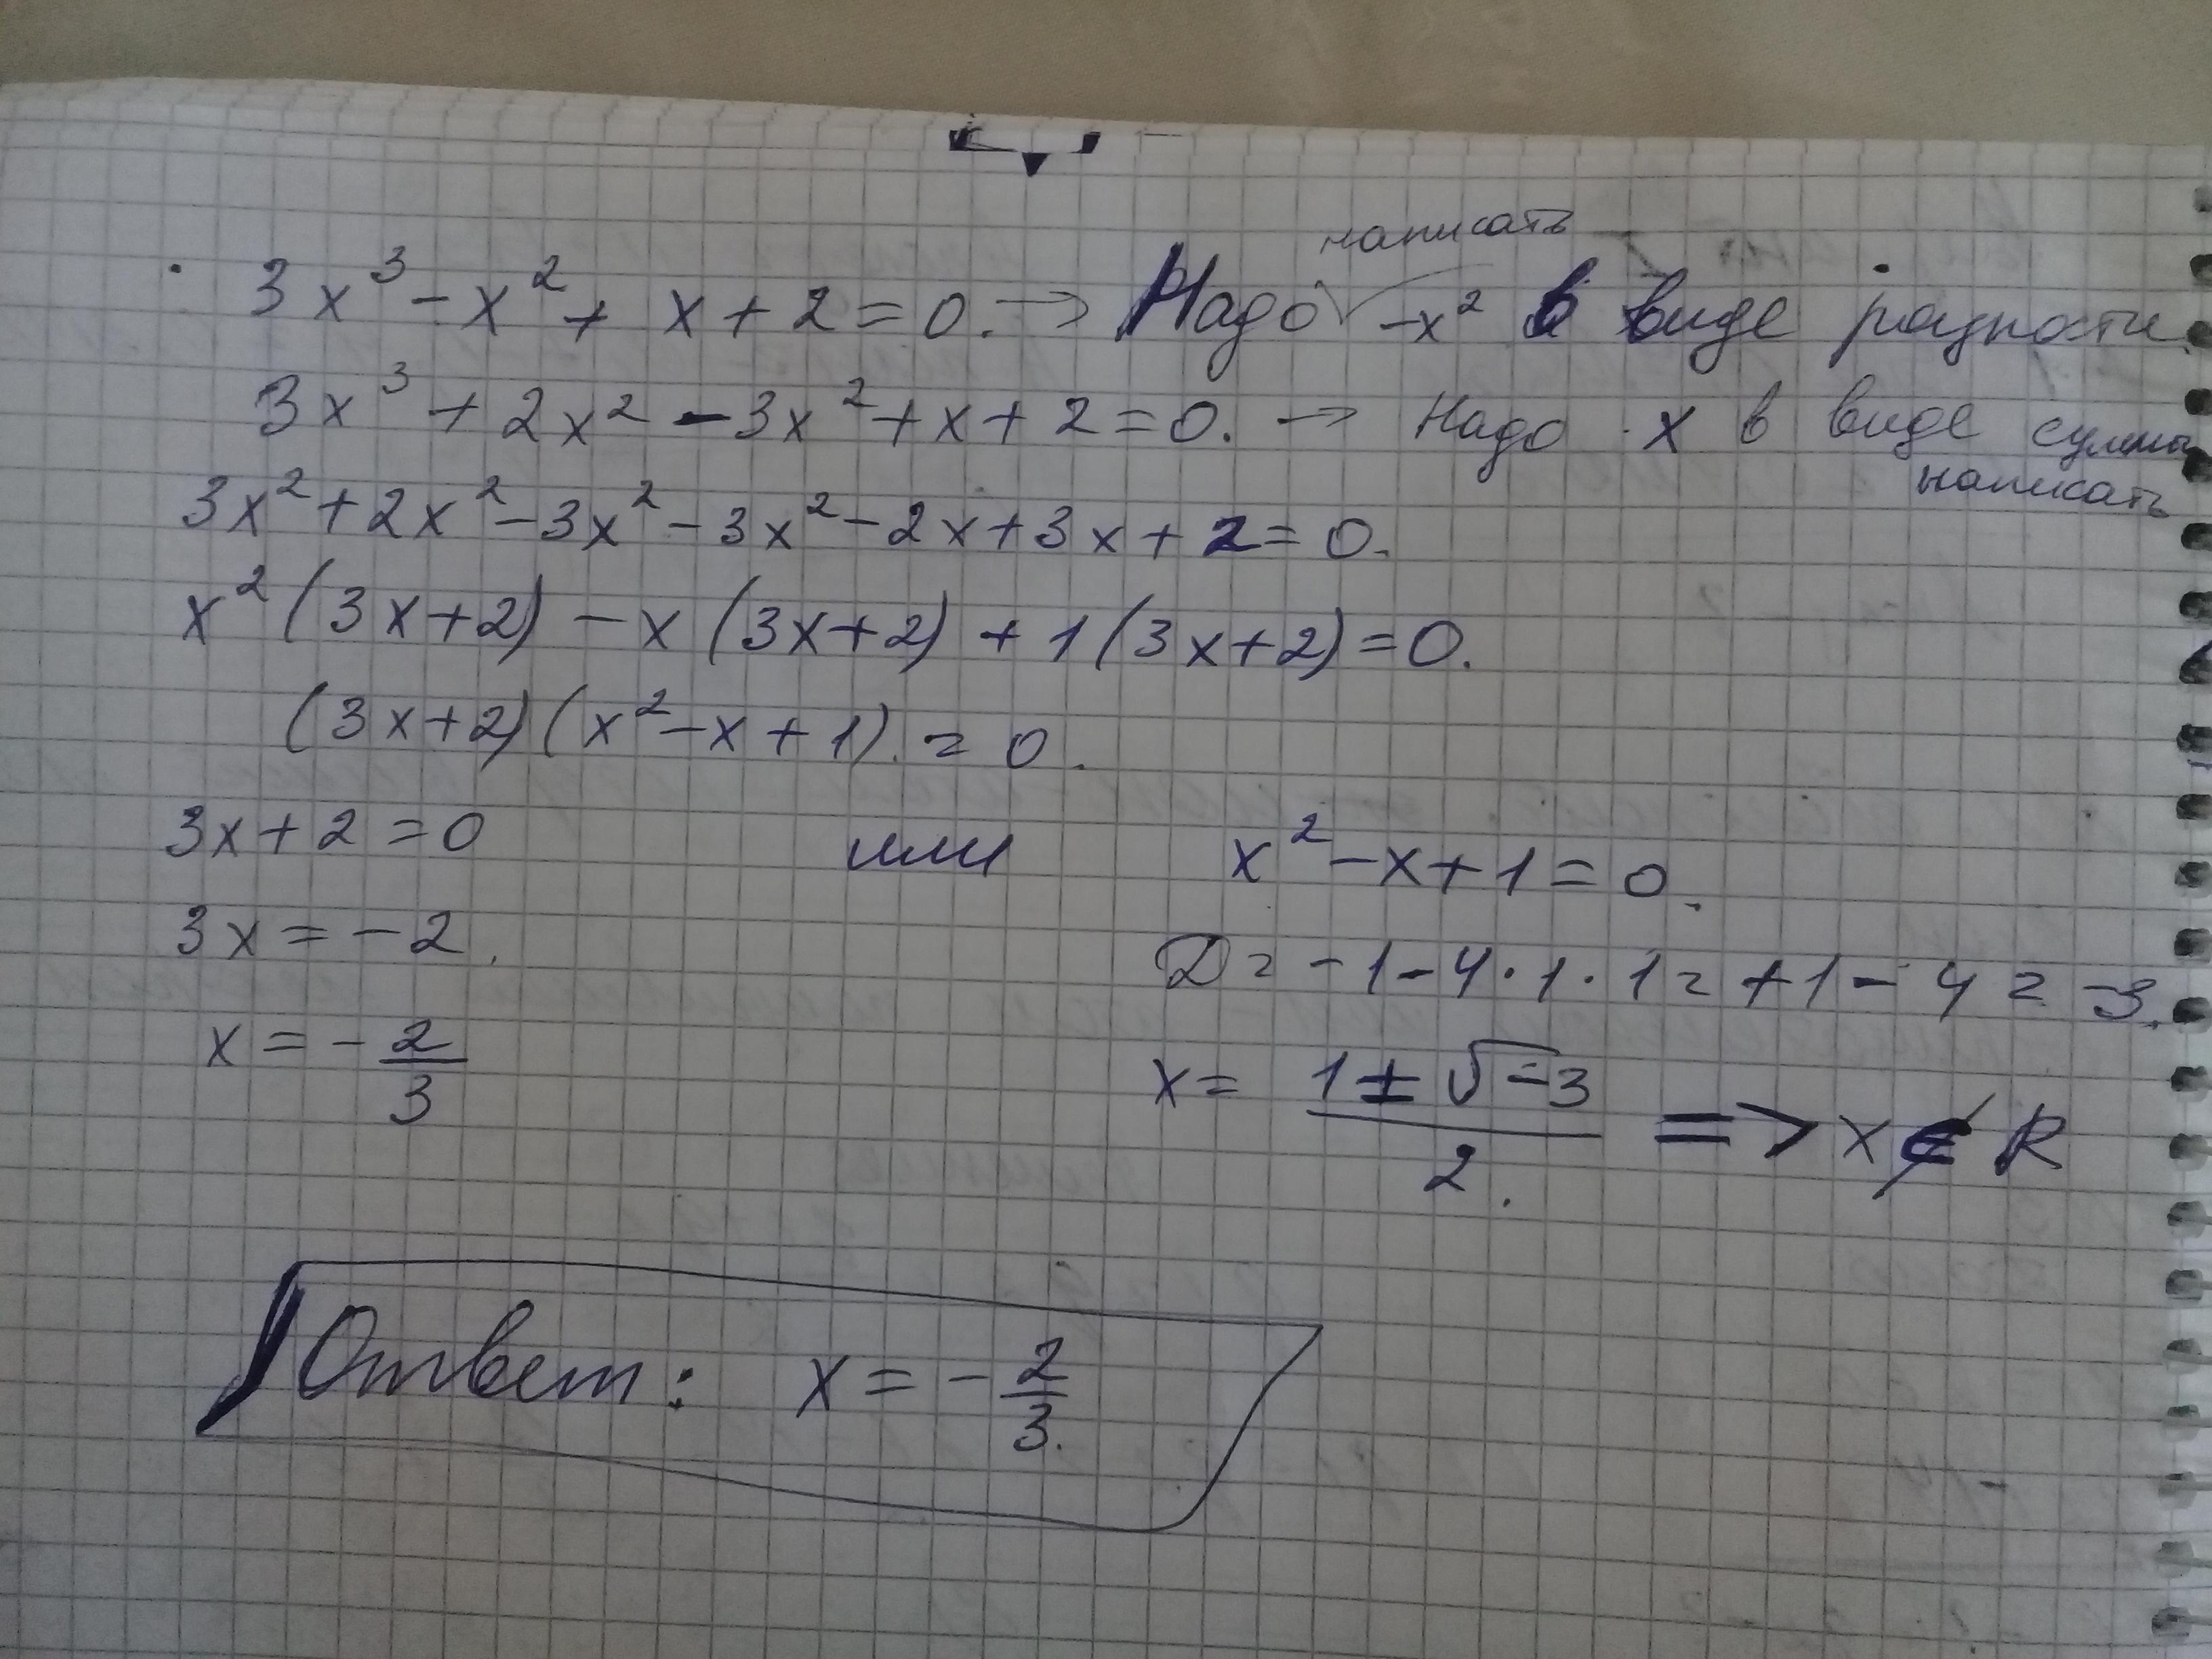 написать
3x³ - x² + x + 2 = 0. → Надо √ -x² в виде разности.
3x³ + 2x² - 3x² + x + 2 = 0. → Надо x в виде суммы
написать
3x² + 2x² - 3x² - 3x² - 2x + 3x + 2 = 0.
x² (3x+2) - x (3x+2) + 1 (3x+2) = 0.
(3x+2) (x² - x + 1) = 0.
3x + 2 = 0 или x² - x + 1 = 0.
3x = -2. D = -1 - 4·1·1 = +1 - 4 = -3.
x = -2/3 x = (1 ± √-3)/2. => x ∉ R
Ответ: x = -2/3.